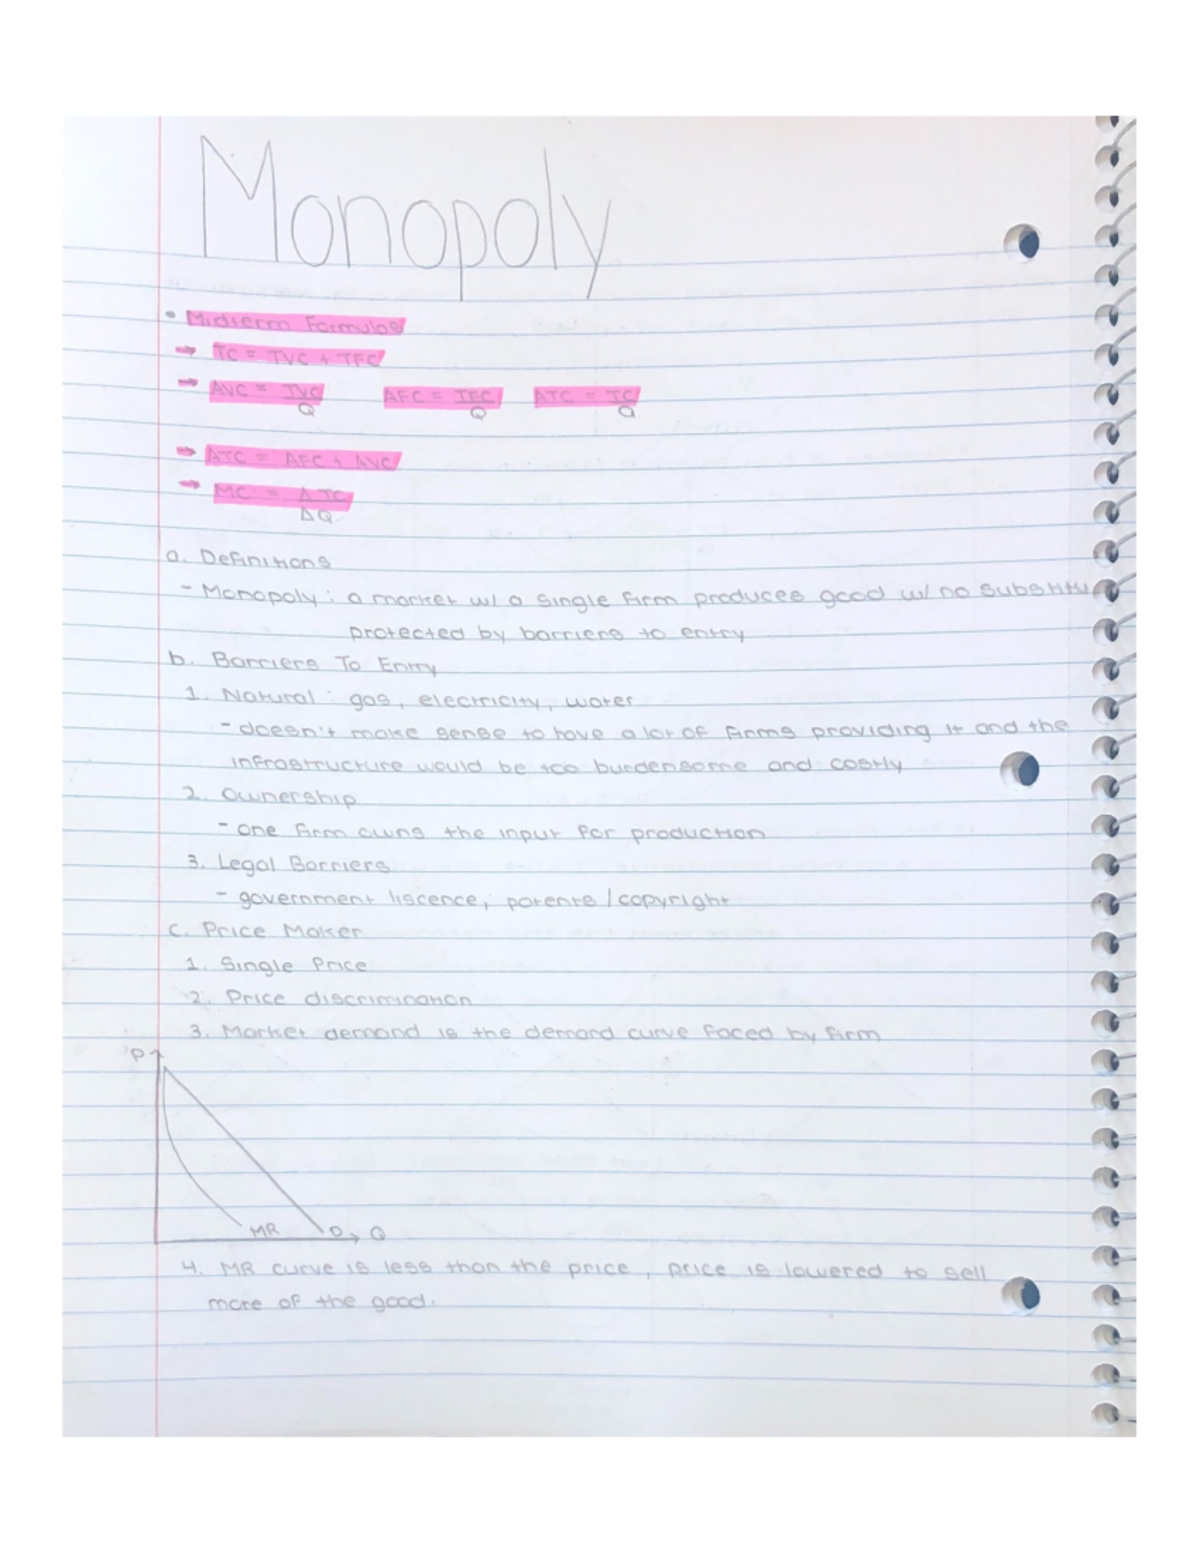 Monopoly
• Midterm Formulas
→ TC = TVC + TFC
→ AVC = TVC/Q AFC = TFC/Q ATC = TC/Q
→ ATC = AFC + AVC
→ MC = Δ TC/ΔQ
a. Definitions
- Monopoly: a market w/ a single firm produces good w/ no substitu
protected by barriers to entry
b. Barriers To Entry
1. Natural: gas, electricity, water
- doesn't make sense to have a lot of firms providing it and the
infrastructure would be too burdensome and costly
2. Ownership
- one firm owns the input for production
3. Legal Barriers
- government liscence, patents / copyright
c. Price Maker
1. Single Price
2. Price discrimination
3. Market demand is the demand curve faced by firm
P
MR D Q
4. MR curve is less than the price, price is lowered to sell
more of the good.